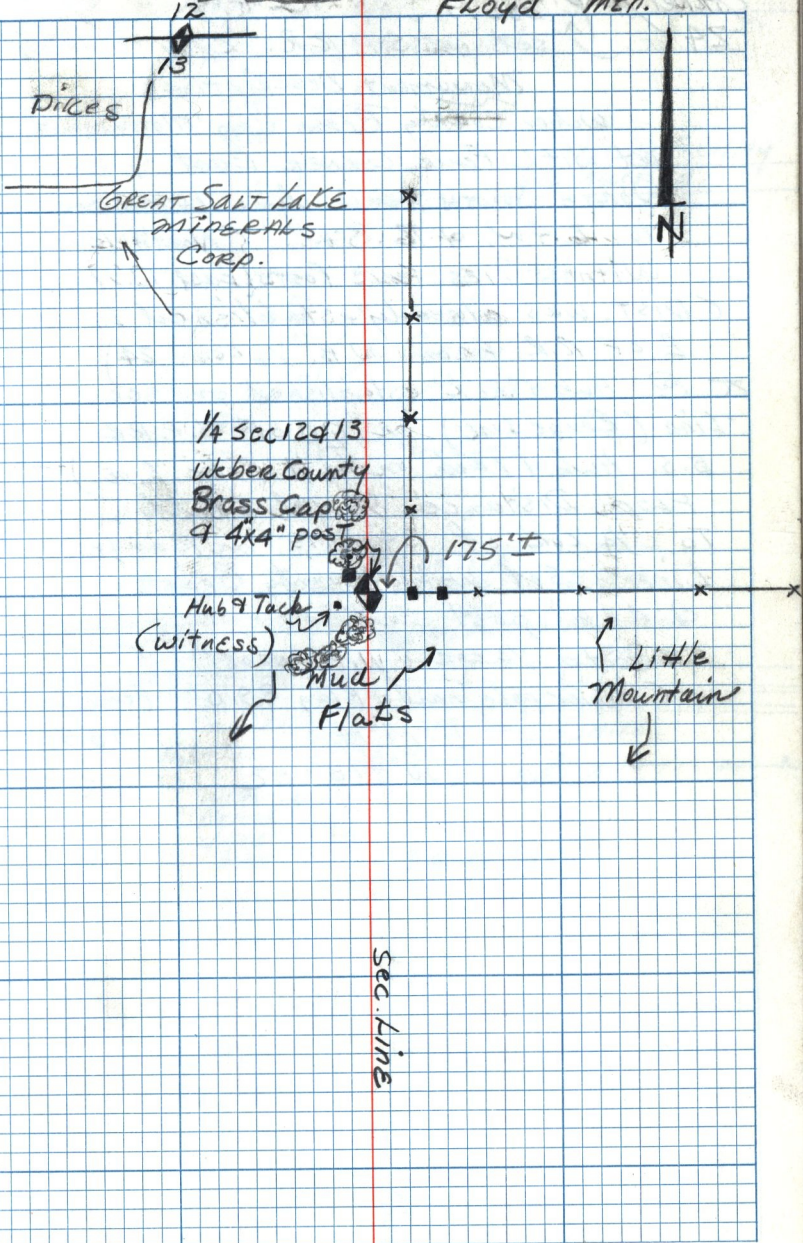 12
Floyd Mtn.
13
Dikes
N
Great Salt Lake
Minerals
Corp.
1/4 Sec 12 & 13
Weber County
Brass Cap
& 4"x4" post
175'±
Hub & Tack
(witness)
Mud
Flats
Little
Mountain
Sec. Line